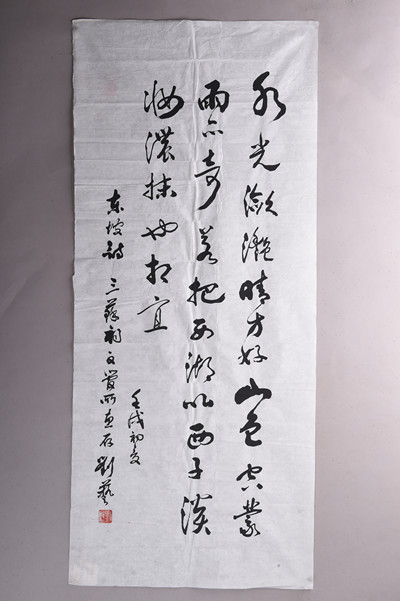 水光潋滟晴方好山色空蒙
雨亦奇若把西湖比西子淡
妆浓抹也相宜
东坡诗 三苏祠文管所惠存 刘艺
壬戌初夏